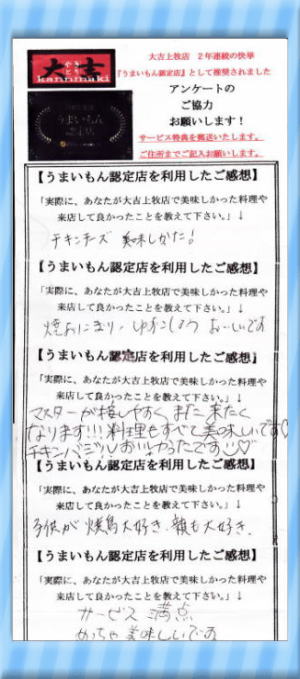 大吉
やきとり
kannmaki
うまいもん
認定店
大吉上牧店 2年連続の快挙
『うまいもん認定店』として推奨されました
アンケートの
ご協力
お願いします!
サービス特典を郵送いたします。
ご住所までご記入お願いします。
【うまいもん認定店を利用したご感想】
「実際に、あなたが大吉上牧店で美味しかった料理や
来店して良かったことを教えて下さい。」↓
チキンチーズ 美味しかた!
【うまいもん認定店を利用したご感想】
「実際に、あなたが大吉上牧店で美味しかった料理や
来店して良かったことを教えて下さい。」↓
焼おにぎり、 おいしいです
【うまいもん認定店を利用したご感想】
「実際に、あなたが大吉上牧店で美味しかった料理や
来店して良かったことを教えて下さい。」↓
マスターが接しやすく、また来たく
なります!!!料理もすべて美味しいです♡
チキンバジルおいしかったです♡
【うまいもん認定店を利用したご感想】
「実際に、あなたが大吉上牧店で美味しかった料理や
来店して良かったことを教えて下さい。」↓
子供が焼鳥大好き、親も大好き、
【うまいもん認定店を利用したご感想】
「実際に、あなたが大吉上牧店で美味しかった料理や
来店して良かったことを教えて下さい。」↓
サービス満点
めっちゃ美味しいです